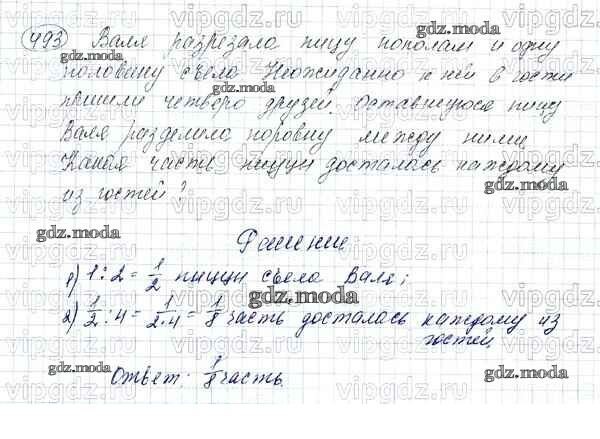 493 Валя разрезала пиццу пополам и одну
половину съела Неожиданно к ней в гости
пришли четверо друзей. Оставшуюся пиццу
Валя разделила поровну между ними
Какая часть пиццы досталась каждому
из гостей?
Решение
1) 1:2 = 1/2 пиццы съела Валя;
2) 1/2 : 4 = 1/2·4 = 1/8 часть досталась каждому из
гостей.
Ответ: 1/8 часть.
vipgdz.com
gdz.moda